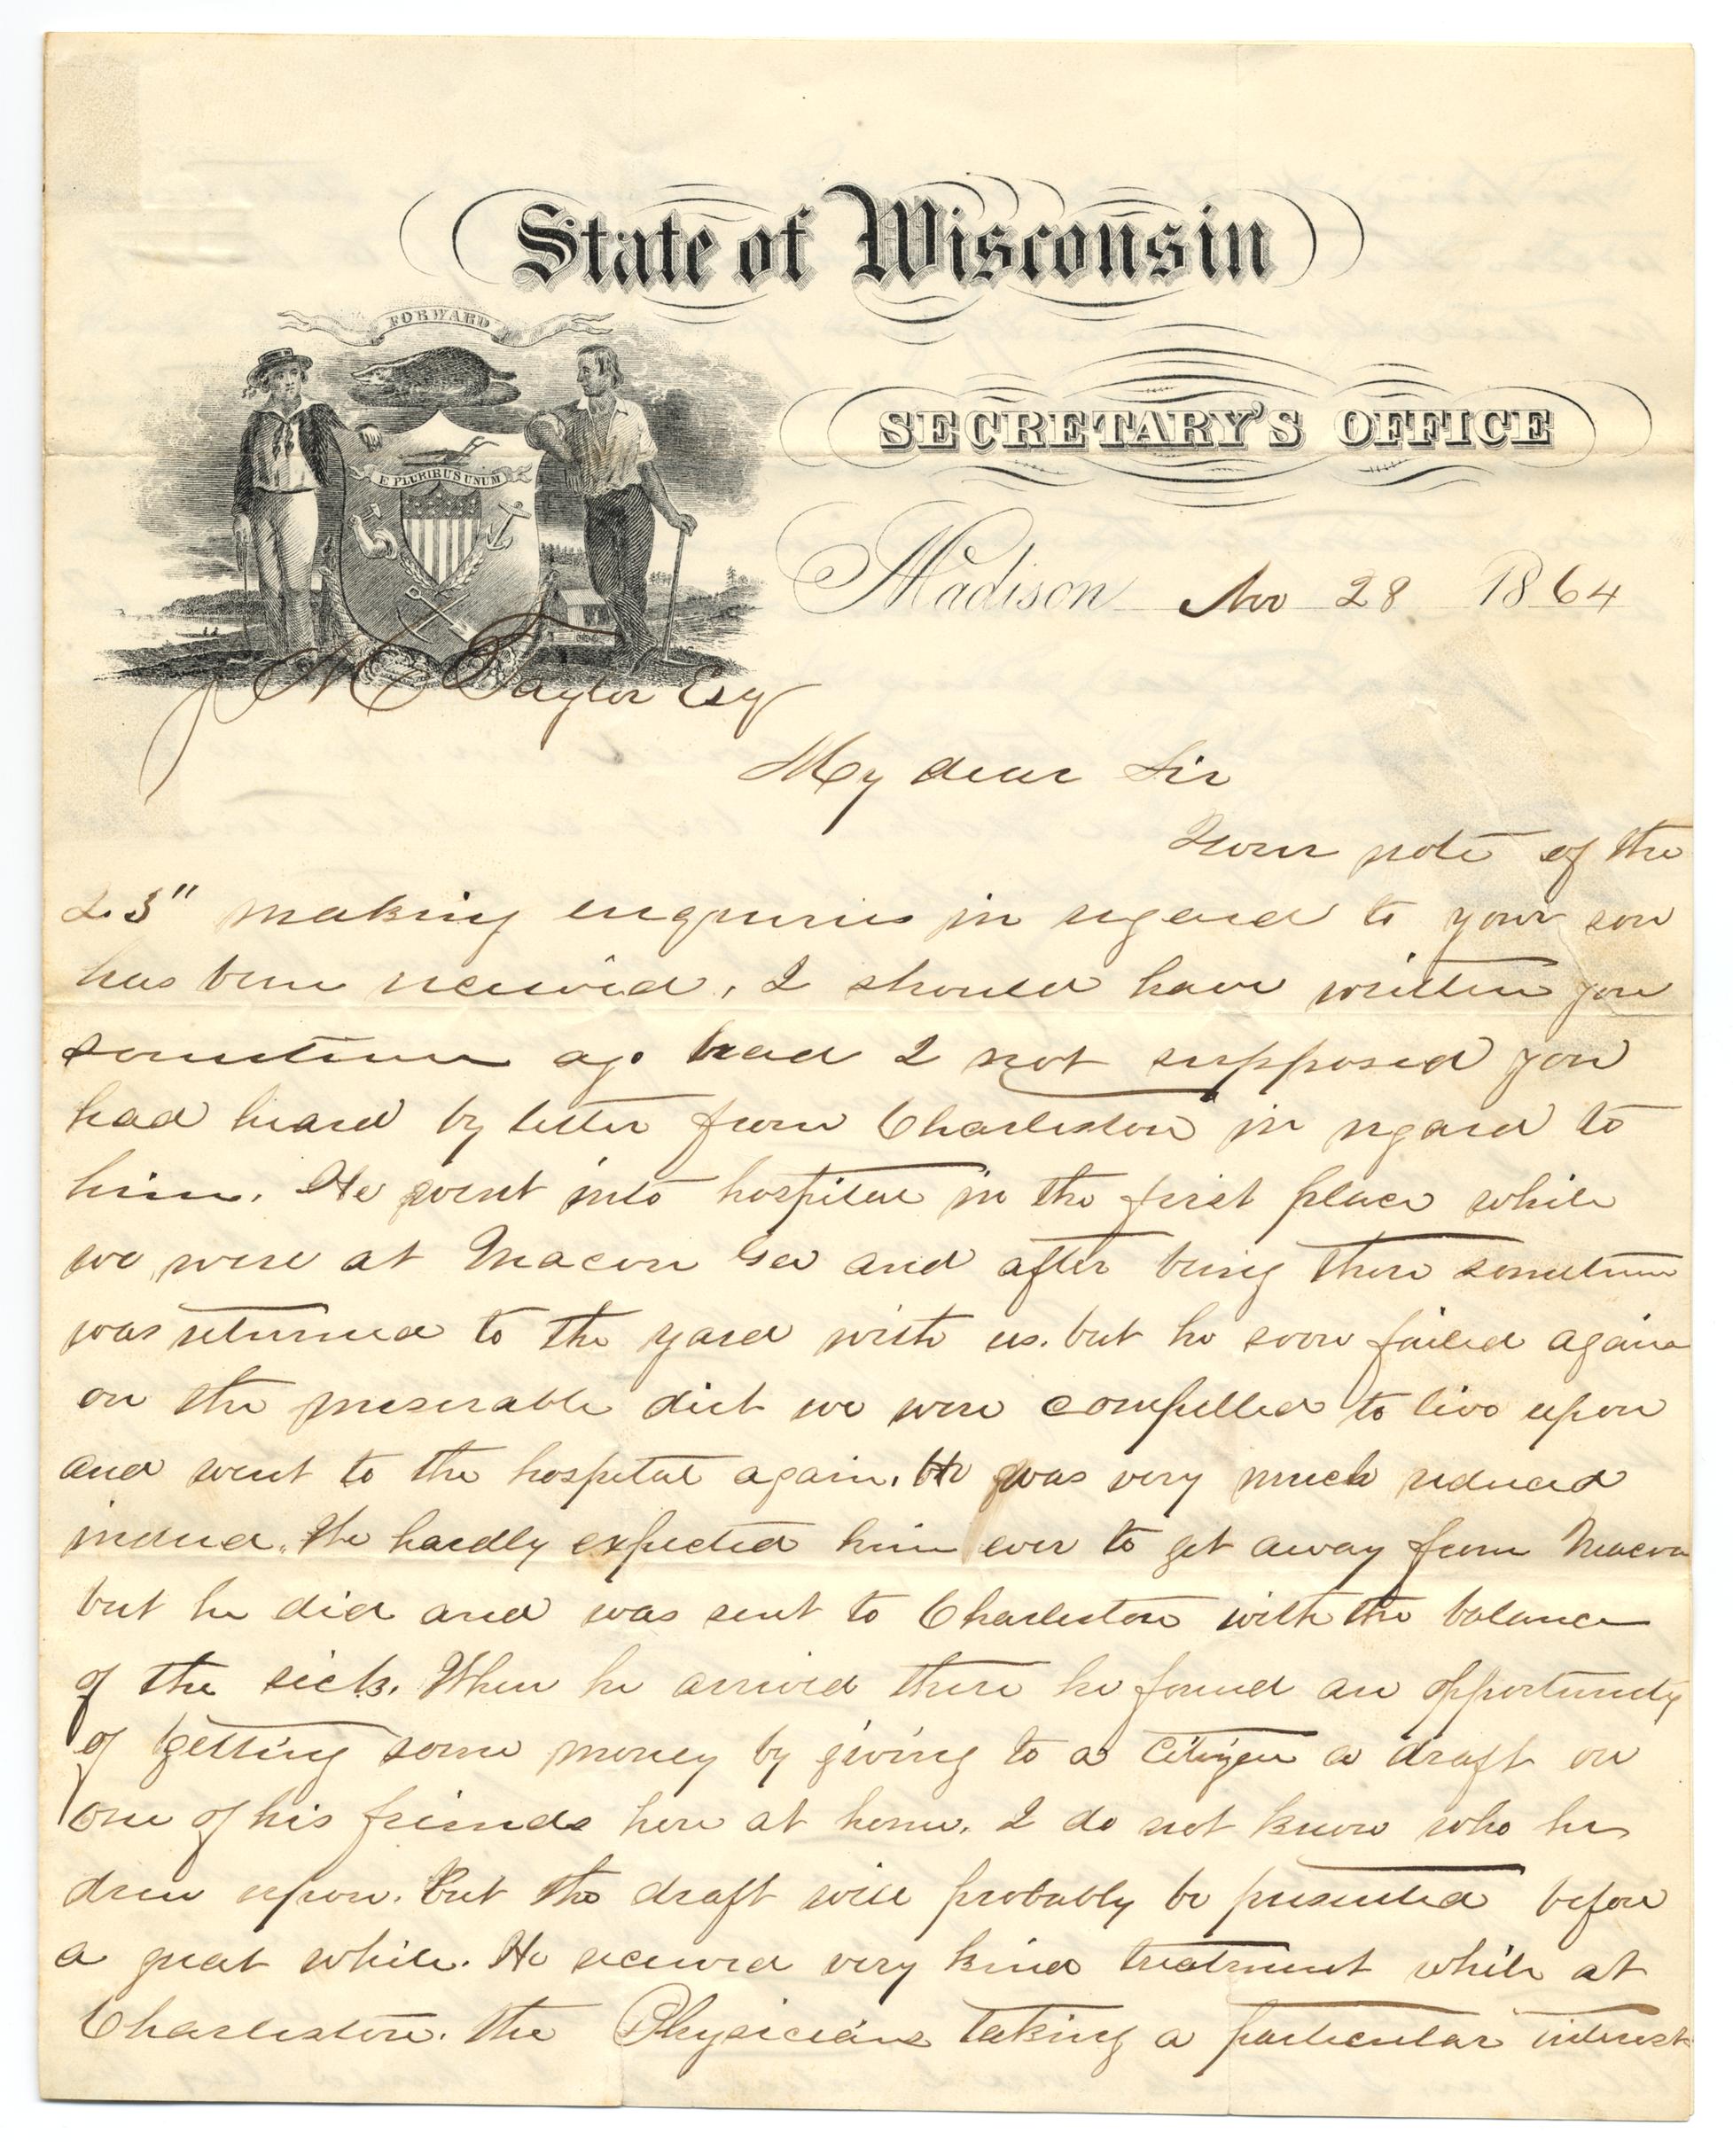 State of Wisconsin
FORWARD
SECRETARY'S OFFICE
E PLURIBUS UNUM
Madison Nov 28 1864
J M Taylor Esq
My dear Sir
Your note of the
23" making enquiries in regard to your son
has been received, I should have written you
sometime ago had I not supposed you
had heard by letter from Charleston in regard to
him. He went into hospital in the first place while
we were at Macon Ga and after being there sometime
was returned to the yard with us. but he soon failed again
on the miserable diet we were compelled to live upon
and went to the hospital again. He was very much reduced
indeed. We hardly expected him ever to get away from Macon
but he did and was sent to Charleston with the balance
of the sick. When he arrived there he found an opportunity
of getting some money by giving to a Citizen a draft on
one of his friends here at home. I do not know who he
drew upon. But the draft will probably be presented before
a great while. He received very kind treatment while at
Charleston. the Physicians taking a particular interest